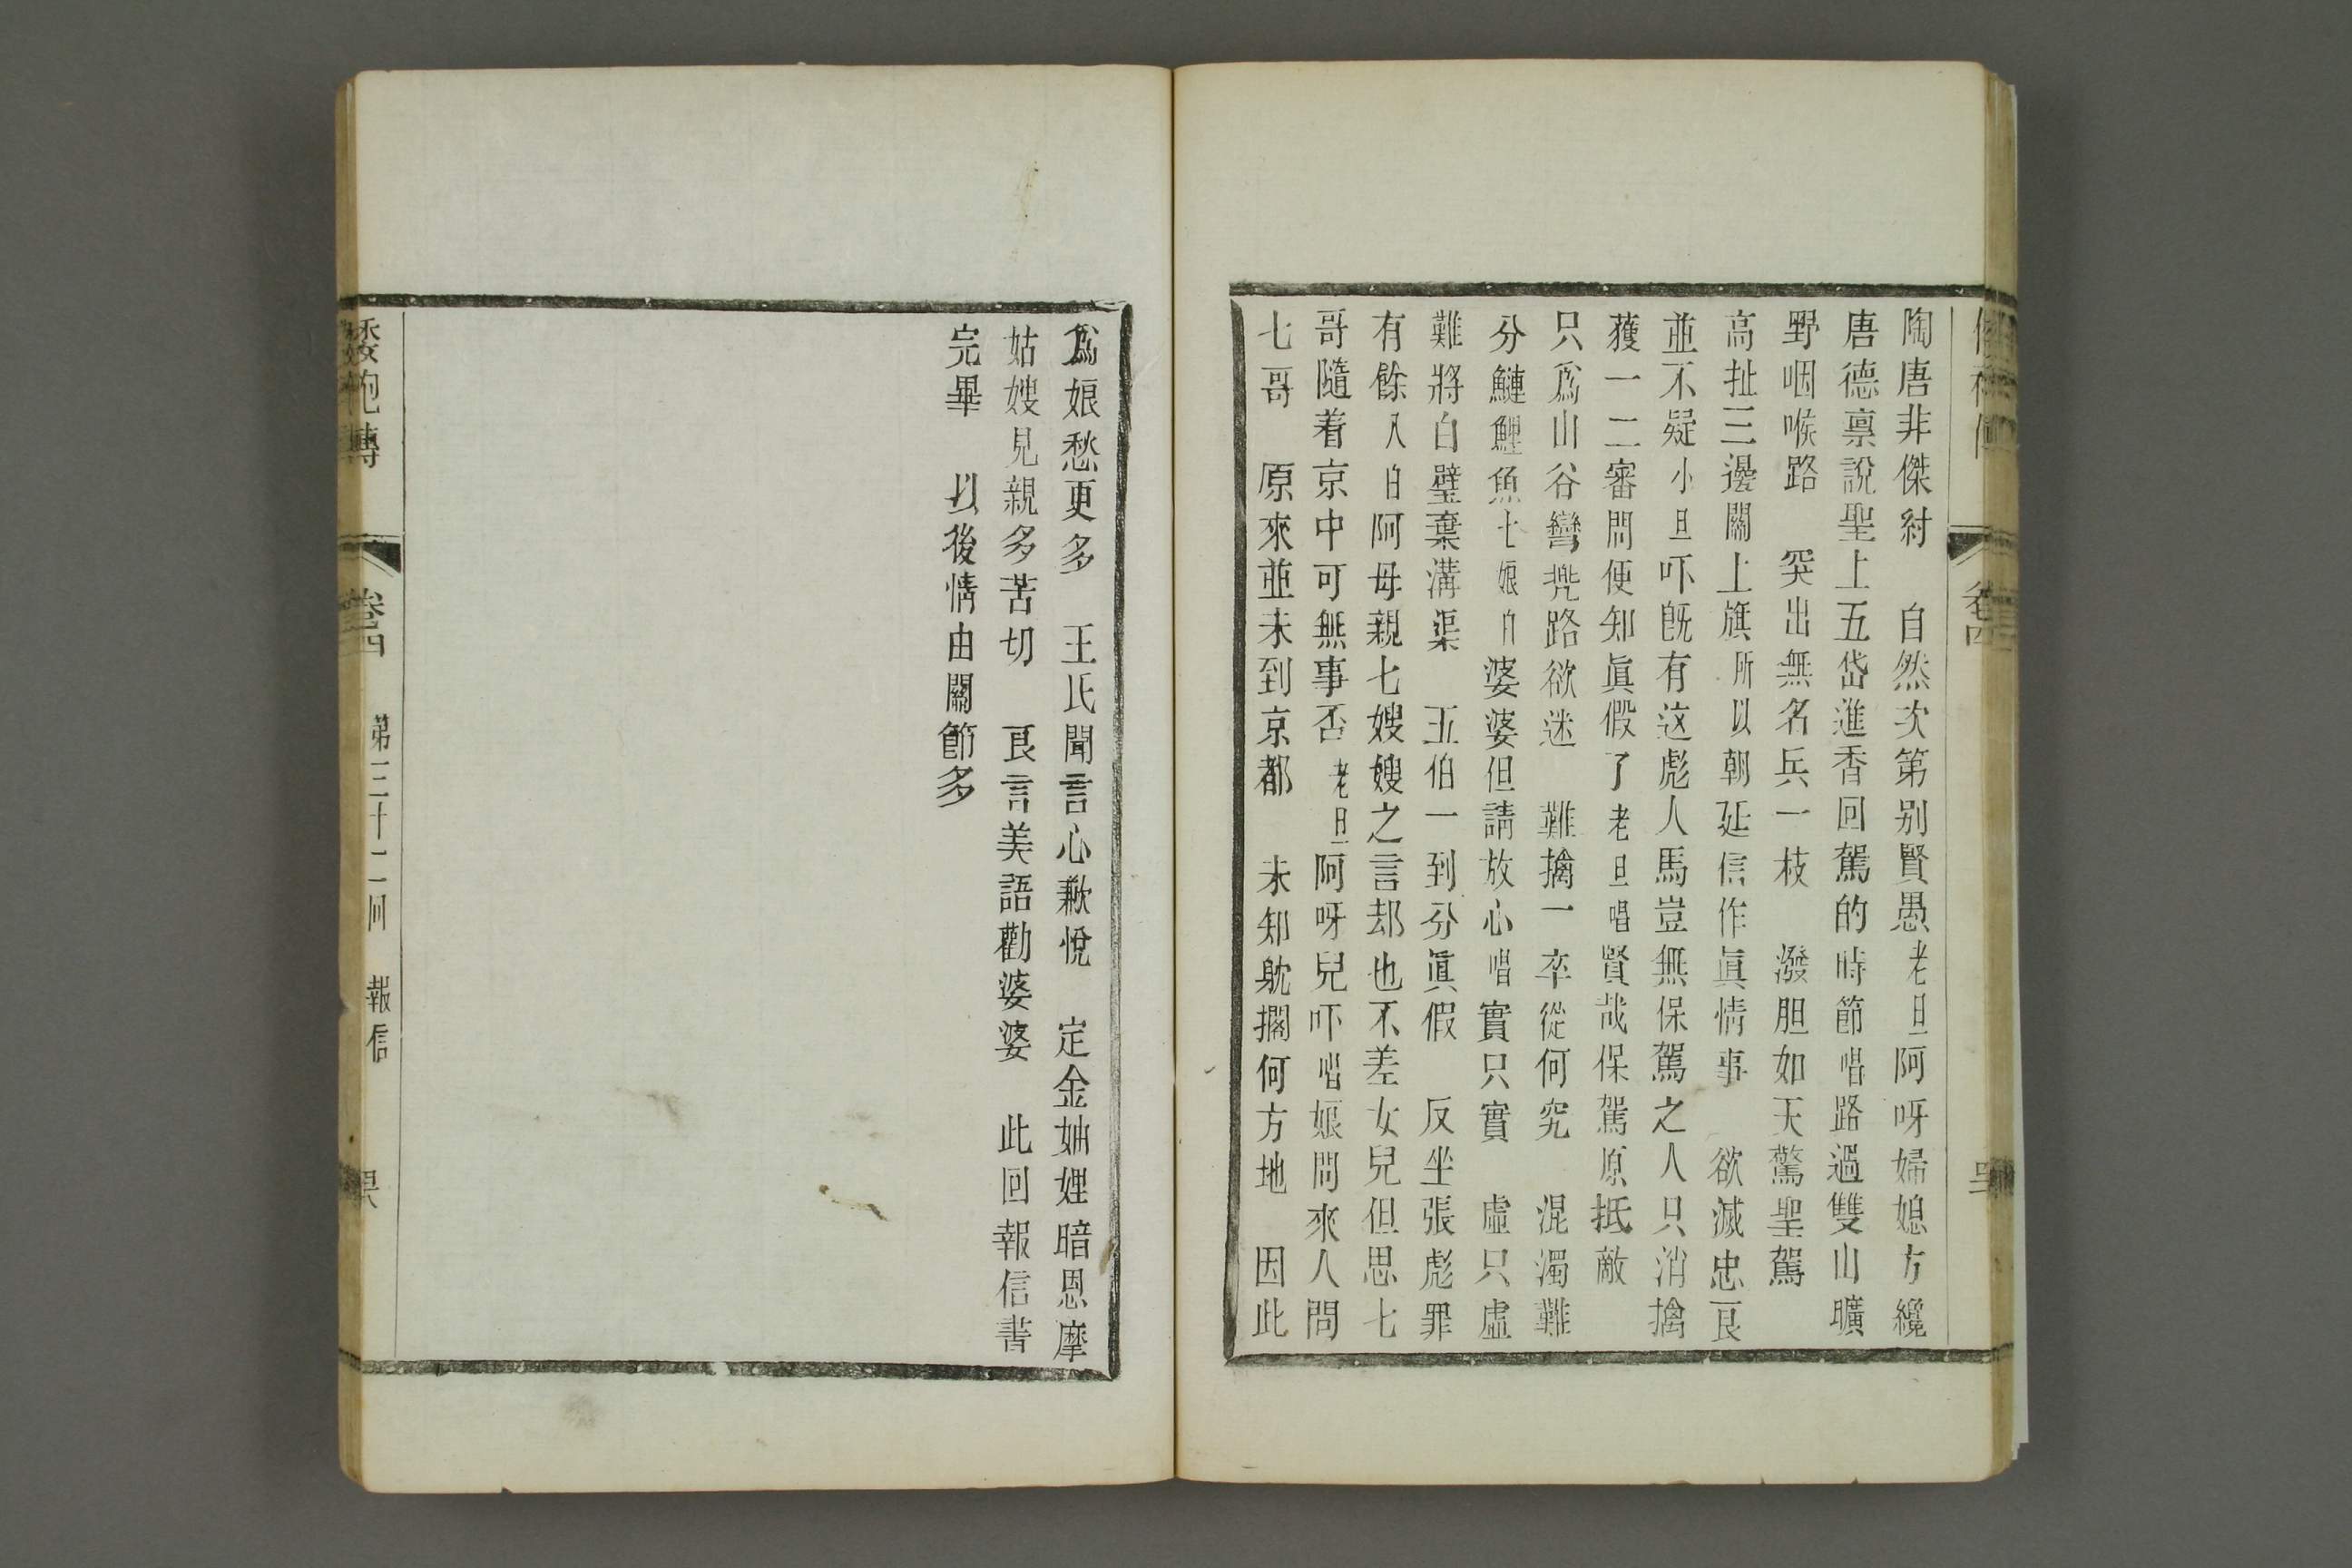 陶唐非傑紂　自然次第别賢愚老旦阿呀婦媳方纔
唐德禀說聖上五岱進香回駕的時節唱路過雙山曠
野咽喉路　突出無名兵一枝　潑胆如天驚聖駕
高扯三邊關上旗所以朝延信作眞情事　欲滅忠良
並不疑小旦吓旣有这彪人馬豈無保駕之人只消擒
獲一二審問便知眞假了老旦唱賢哉保駕原抵敵
只爲山谷彎兠路欲迷　難擒一卒從何究　混濁難
分鰱鯉魚七娘白婆婆但請放心唱實只實　虛只虛
難將白璧棄溝渠　五伯一到分眞假　反坐張彪罪
有餘八白阿母親七嫂嫂之言却也不差女兒但思七
哥隨着京中可無事否老旦阿呀兒吓唱娘問來人問
七哥　原來並未到京都　未知躭擱何方地　因此
卷四
爲娘愁更多　王氏聞言心歉悅　定金妯娌暗恩摩
姑嫂見親多苦切　良言美語勸婆婆　此回報信書
完畢　以後情由關節多
袍傳
卷四
第三十二回　報信